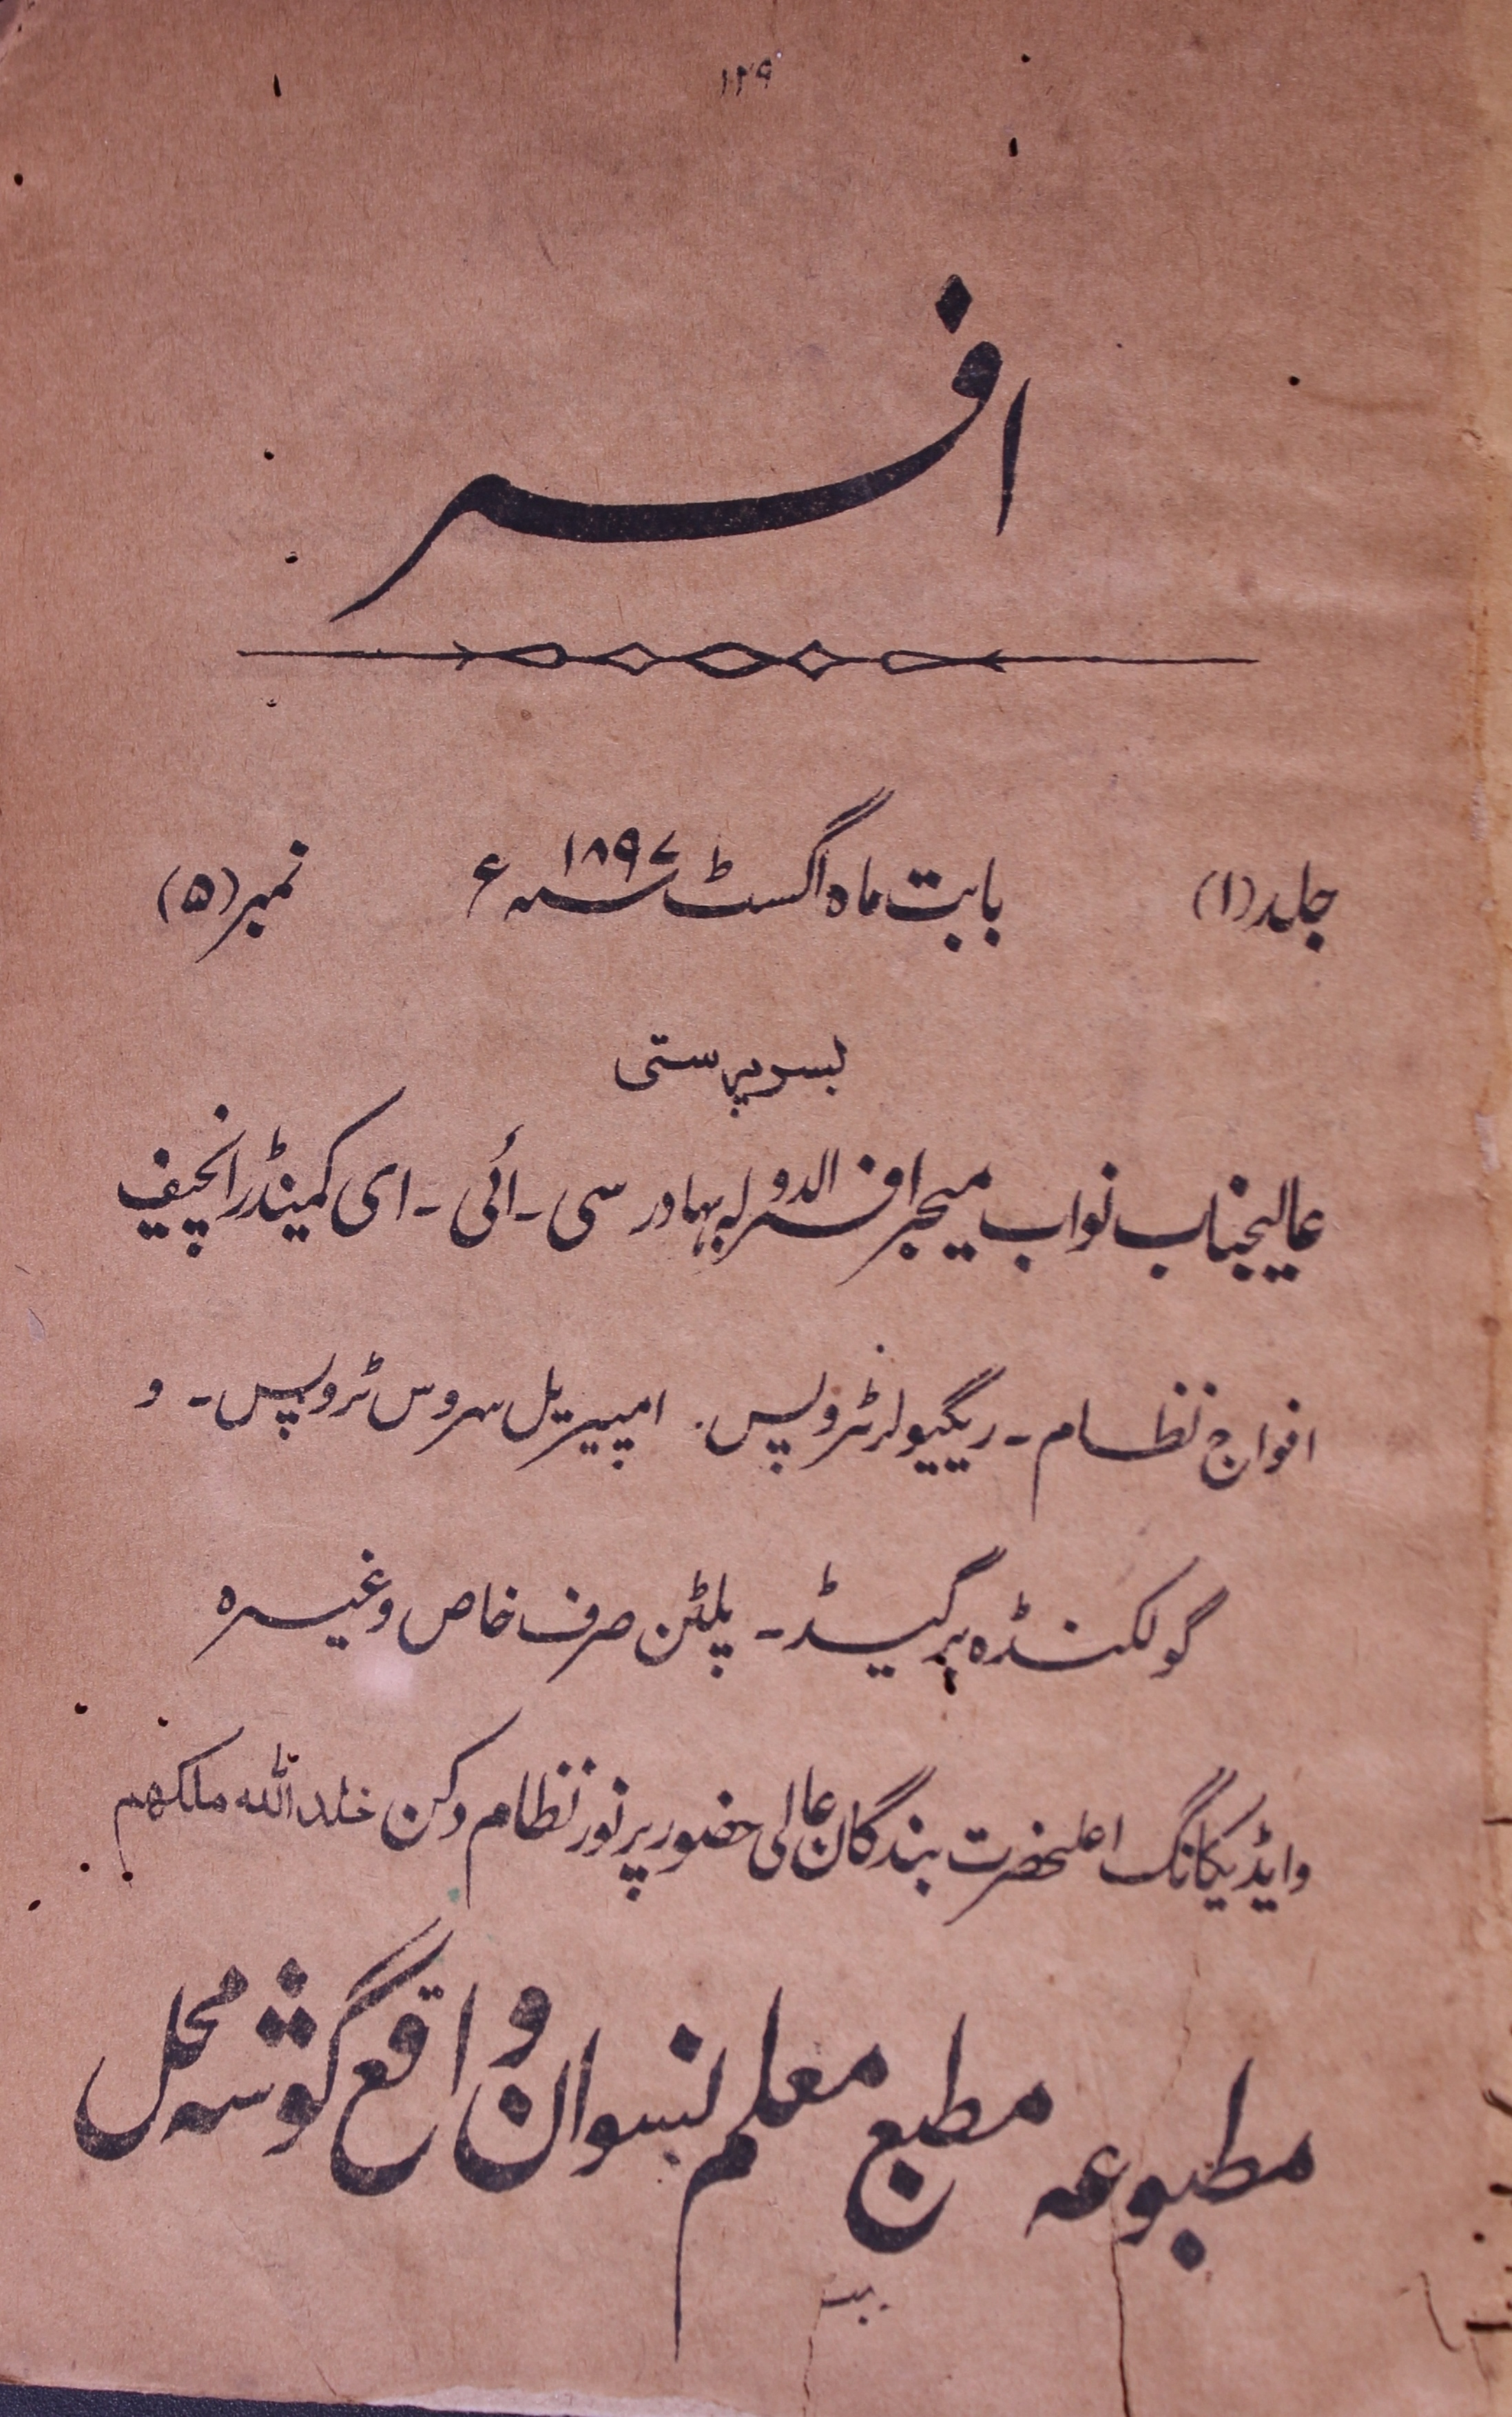 ۱۲۹
افسر
جلد (۱) بابت ماہ اگسٹ سنہ ۱۸۹۷ء نمبر (۵)
بسرپرستی
عالیجناب نواب میجر افسر الدولہ بہادر سی ۔ ائی ۔ ای کمینڈر انچیف
افواج نظام ۔ ریگیولر ٹروپس ۔ امپیریل سروس ٹروپس ۔ و
گولکنڈہ برگیڈ ۔ پلٹن صرف خاص وغیرہ
و ایڈیکانگ اعلیحضرت بندگان عالی حضور پرنور نظام دکن خلد اللہ ملکھم
مطبوعہ مطبع معلم نسوان واقع گوشہ محل